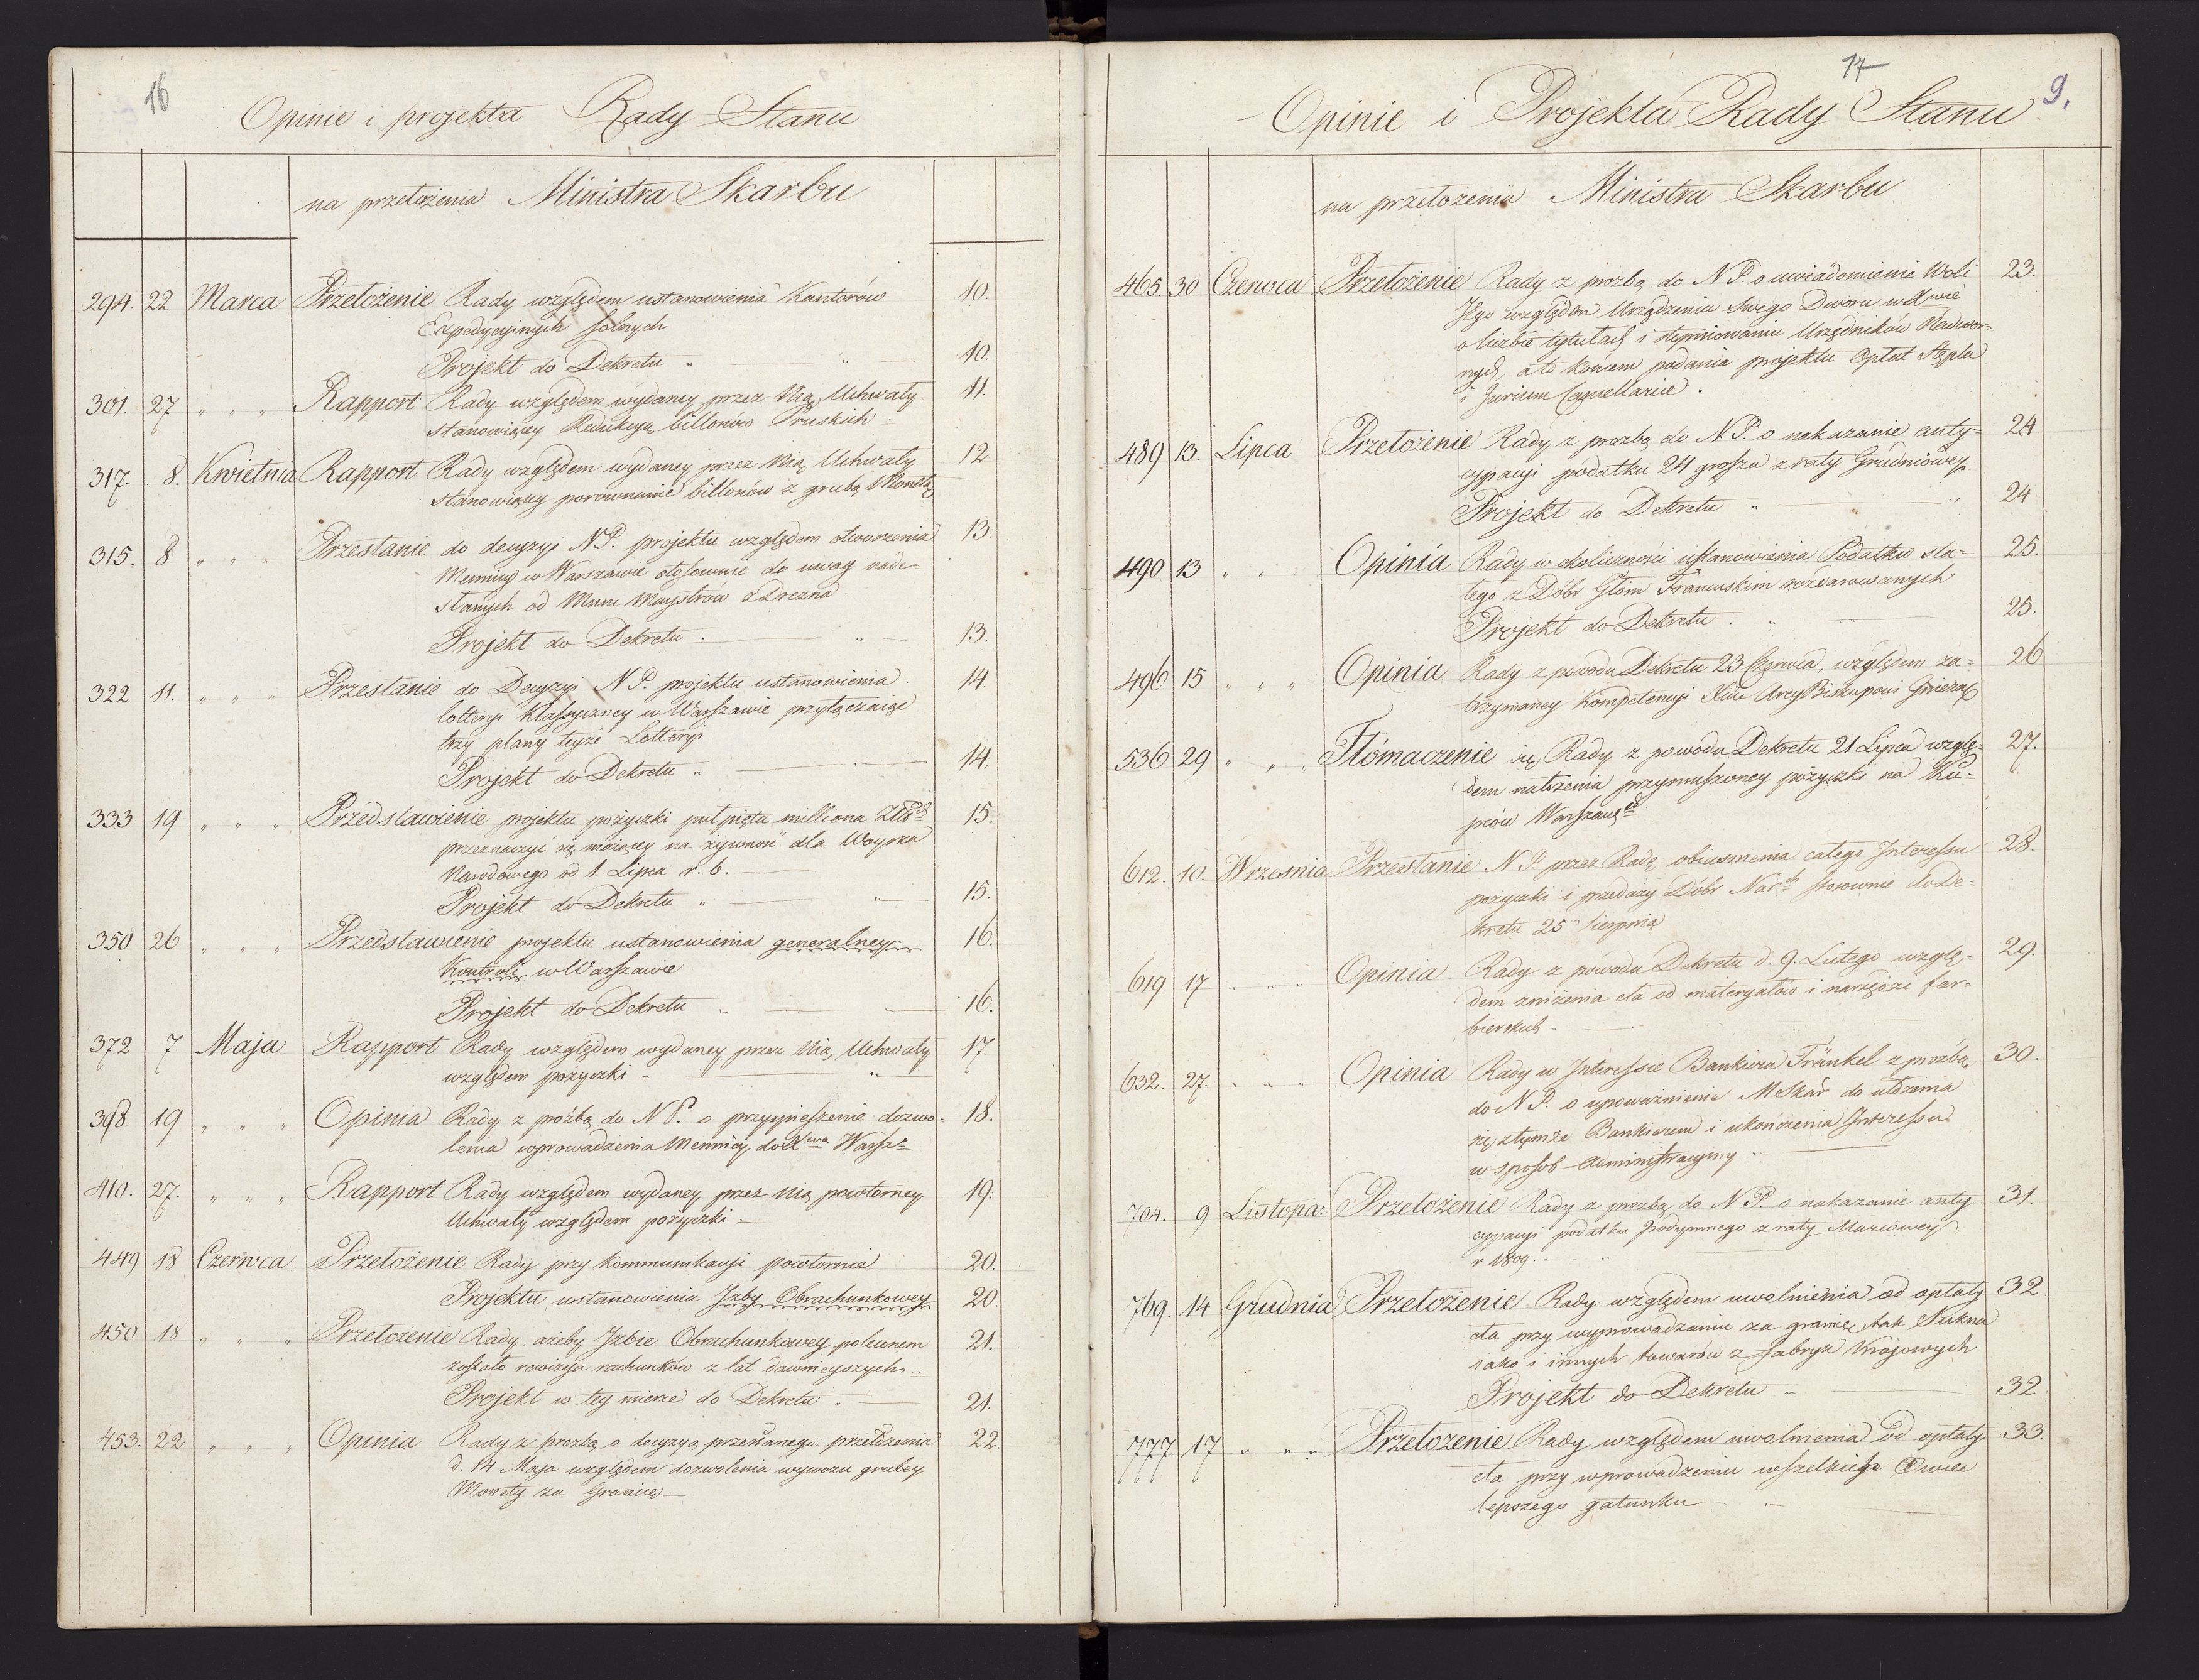 16
Opinie i projekta Rady Stanu
na przełożenia Ministra Skarbu
294. 22 Marca Przełożenie Rady względem ustanowienia Kantorów 10.
Expedycyinych solnych
Projekt do Dekretu „ „ 10.
301. 27 „ „ „ Rapport Rady względem wydaney przez Nią Uchwały 11.
stanowiącey Redukcyą billonów Pruskich.
317. 8. Kwietnia Rapport Rady względem wydaney przez Nią Uchwały 12
stanowiącey porownanie billonów z grubą Monetą
315. 8 „ „ „ Przesłanie do decyzyi NP. projektu względem otworzenia 13.
Mennicy w Warszawie stosownie do uwag nade-
słanych od Menni Maystrow z Drezna.
Projekt do Dekretu. „ 13.
322 11. „ „ „ Przesłanie do Decyzyi NP. projektu ustanowienia 14.
lotteryi Klassyczney w Warszawie przyłączaiąc
trzy plany teyże Lotteryi
Projekt do Dekretu „ 14.
333 19 „ „ „ Przedstawienie projektu pożyczki puł pięta milliona Złłch 15.
przeznaczyć się maiącey na żywność dla Woyska
Narodowego od 1. Lipca r. b.
Projekt do Dekretu „ „ 15.
350 26 „ „ „ Przedstawienie projektu ustanowienia generalney 16.
Kontroli w Warszawie
Projekt do Dekretu „ „ 16.
372 7 Maja Rapport Rady względem wydaney przez Nią Uchwały 17.
względem pożyczki „
398. 19 „ „ „ Opinia Rady z proźbą do NP. o przyspieszenie dozwo- 18.
lenia wprowadzenia Mennicy do Xwa Warsz=
410. 27. „ „ „ Rapport Rady względem wydaney przez nią powtorney 19.
Uchwały względem pożyczki.
449 18 Czerwca Przełożenie Rady przy Kommunikacyi powtornie 20.
Projektu ustanowienia Jzby Obrachunkowey 20.
450 18 „ „ „ Przełożenie Rady, ażeby Jzbie Obrachunkowey poleconem 21.
zostało rewizya rachunków z lat dawnieyszych.
Projekt w tey mierze do Dekretu. 21.
453. 22 „ „ „ Opinia Rady z prozbą o decyzyą przesłanego przełożenia 22.
d. 14 Maja względem dozwolenia wywozu grubey
Monety za Granicę.
17
9.
Opinie i Projekta Rady Stanu
na przełożenia Ministra Skarbu
465. 30 Czerwca Przełożenie Rady z prozbą do NP. o uwiadomienie Woli 23.
Jego względem Urządzenia Swego Dworu w Xwie
o liczbie tytułach i stopniowaniu Urzędników Nadwor-
nych, a to końcem podania projektu Opłat Stępla
i Jurium Cancellariae.
489 13. Lipca Przełożenie Rady z prozbą do NP. o nakazanie anty- 24
cypacyi podatku 24 grosza z raty Grudniowey
Projekt do Dekretu „ „ 24
490 13 „ „ Opinia Rady w okoliczności ustanowienia Podatku sta= 25.
łego z Dóbr Głom Francuskim rozdarowanych
Projekt do Dekretu. „ 25.
496 15 „ „ „ Opinia Rady z powodu Dekretu 23 Czerwca, względem za= 26
trzymaney Kompetencyi Xiu ArcyBiskupowi Gniezn
536 29 „ „ „ Tłómaczenie się Rady z powodu Dekretu 21 Lipca wzglę= 27.
dem nałożenia przymuszoney pożyczki na Ku=
pców Warszawsch
612. 10. Wrzesnia Przesłanie NP. przez Radę obiasnienia całego Jnteressu 28.
pożyczki i przedaży Dóbr Narch stosownie do De=
kretu 25 Sierpnia
619. 17 „ „ „ Opinia Rady z powodu Dekretu d. 9. Lutego wzglę= 29.
dem zniżenia cła od materyałow i narzędzi far=
bierskich
632. 27. „ „ „ Opinia Rady w Jnteressie Bankiera Fränkel z proźbą 30.
do NP. o upoważnienie MSkar do ułożenia
się ztymże Bankierem i ukończenia Jnteressu
w sposob administracyiny
704. 9 Listopa: Przełożenie Rady z prozbą do NP. o nakazanie anty= 31.
cypacyi podatku Podymnego z raty Marcowey
r 1809.
769. 14 Grudnia Przełożenie Rady względem uwolnienia od opłaty 32
cła przy wyprowadzaniu za granicę tak Sukna
iako i innych towarów z fabryk krajowych
Projekt do Dekretu 32
777. 17 „ „ „ Przełożenie Rady względem uwolnienia od opłaty 33.
cła przy wprowadzeniu wszelkiego Owiec
lepszego gatunku